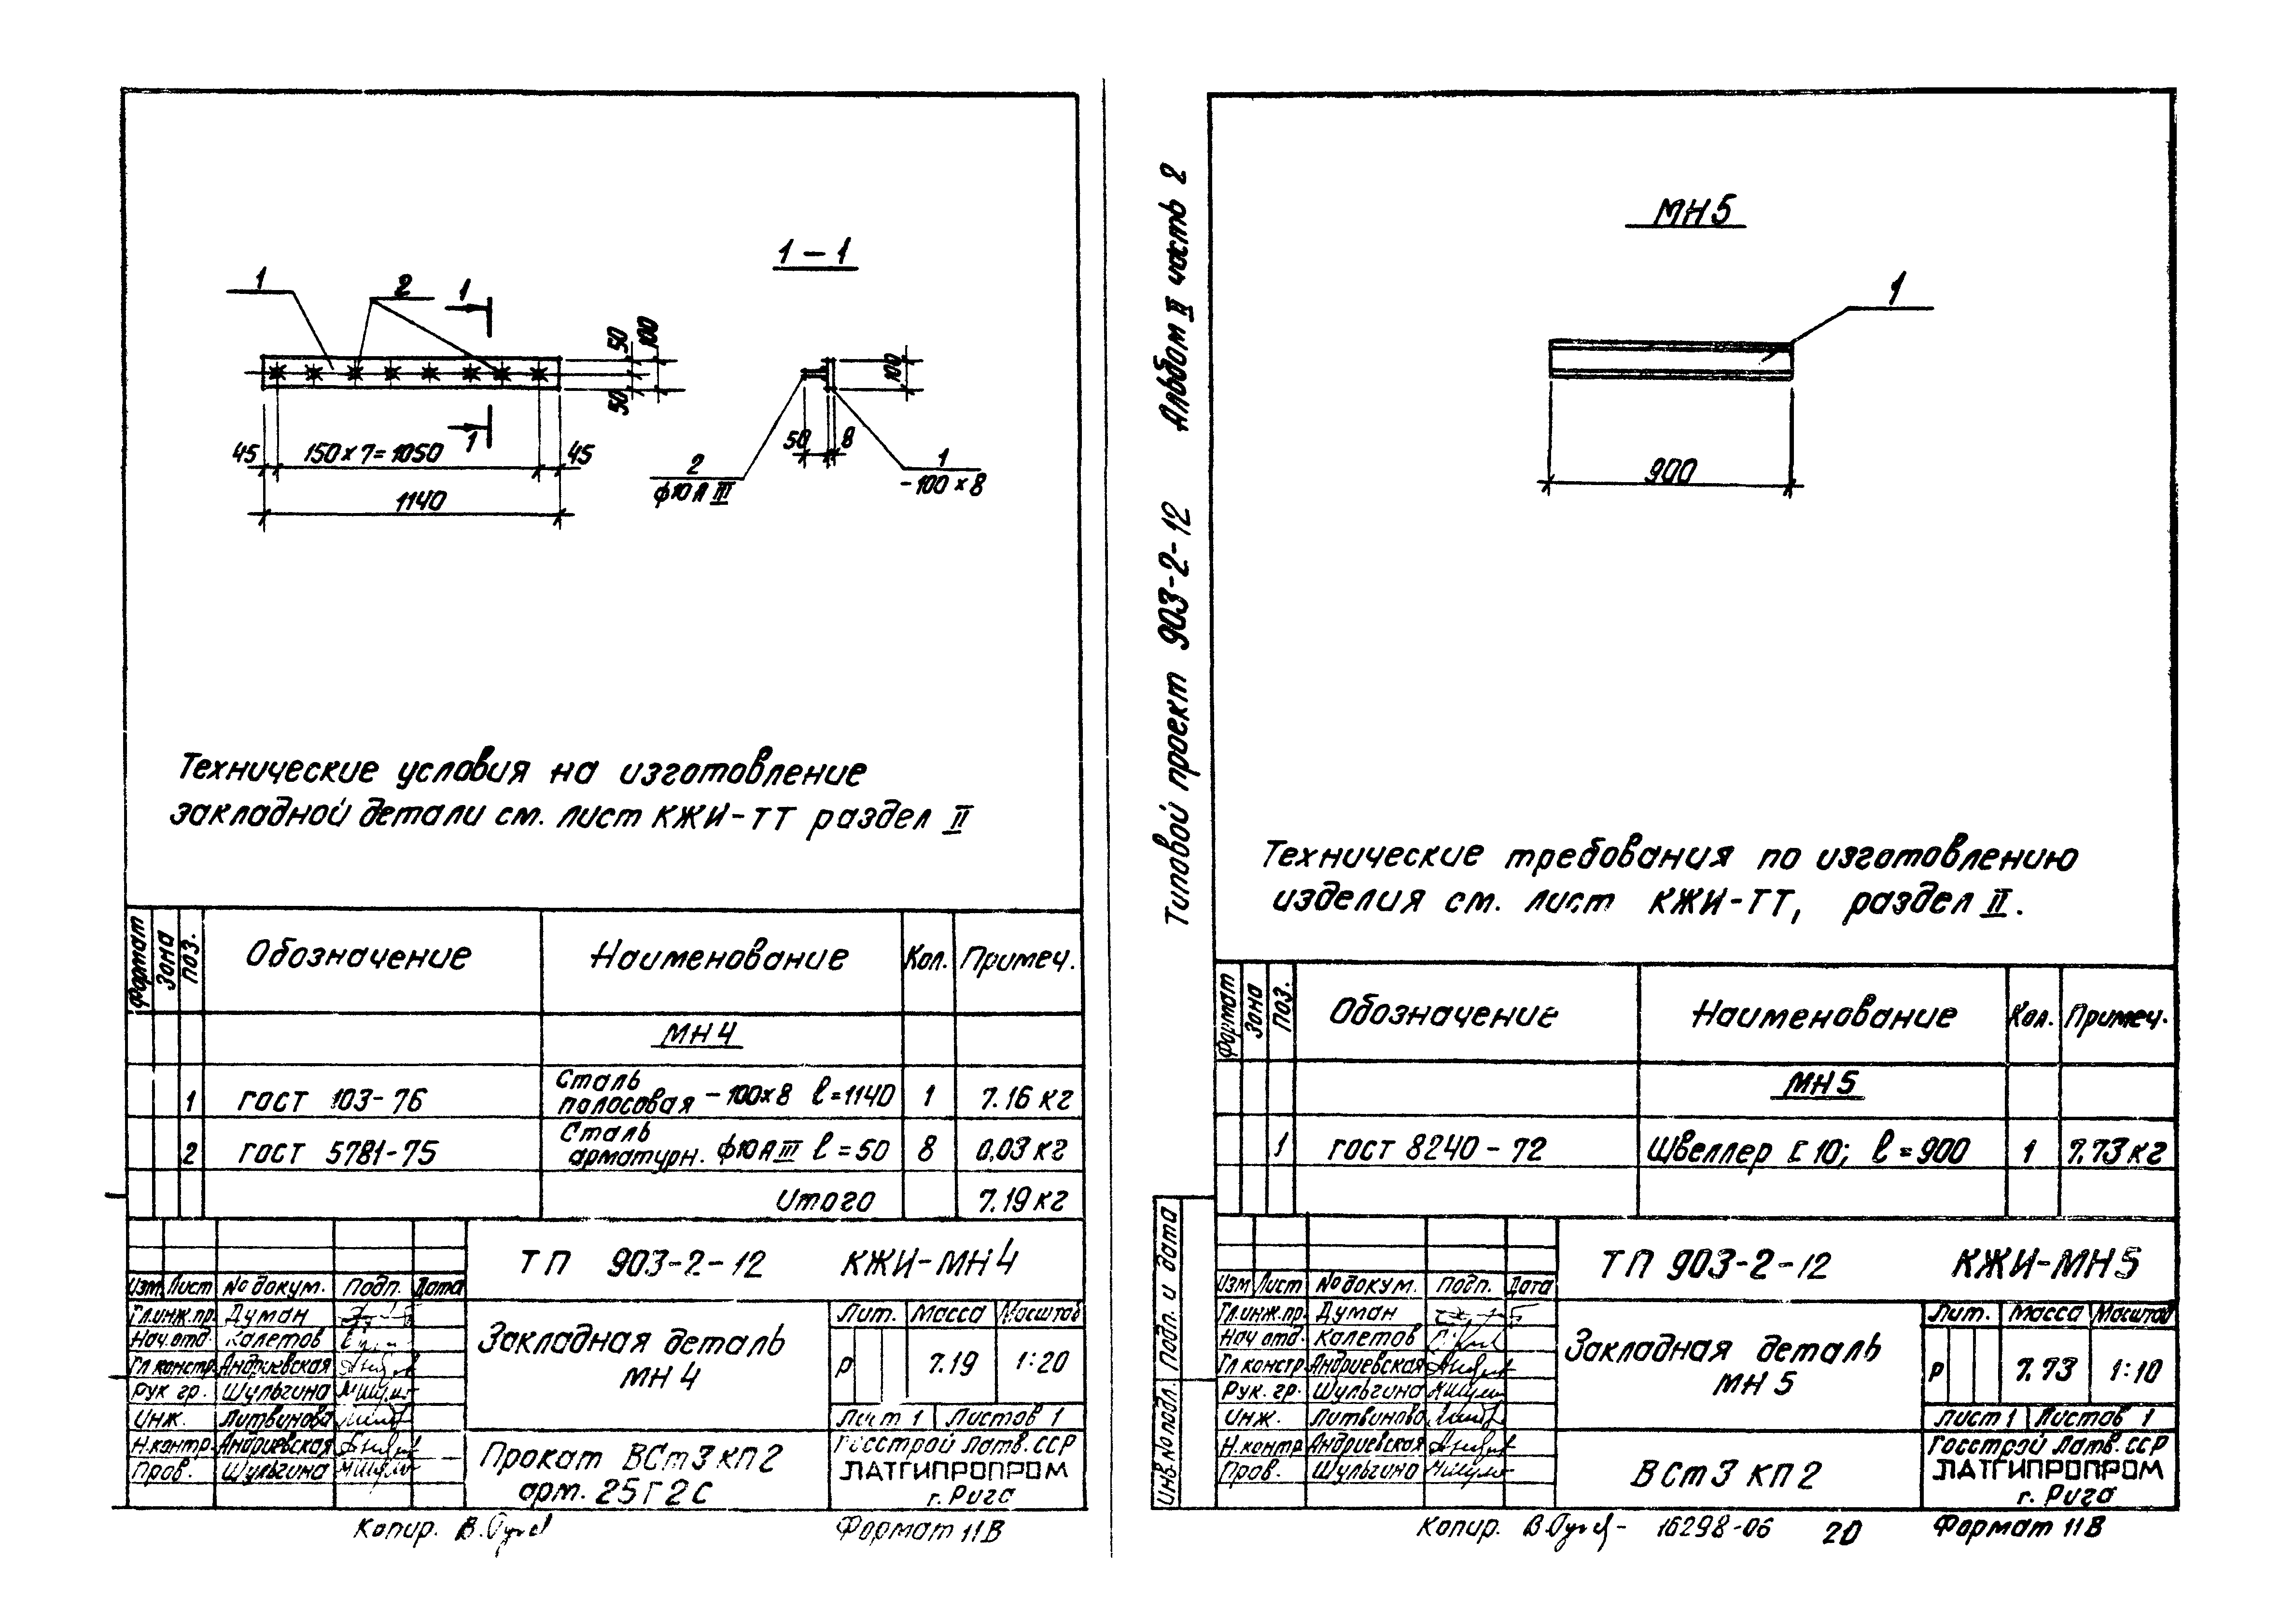 1 - 1
1
2
1
50
100
50
1
45
150 x 7 = 1050
45
1140
100
50
8
2
ф10 А III
1
- 100 x 8
Технические условия на изготовление
закладной детали см. лист КЖИ-ТТ раздел II
Формат Зона Поз. Обозначение Наименование Кол. Примеч.
МН 4
1 ГОСТ 103-76 Сталь полосовая - 100x8 ℓ=1140 1 7.16 кг
2 ГОСТ 5781-75 Сталь арматурн. ф10 А III ℓ=50 8 0,03 кг
Итого 7.19 кг
ТП 903-2-12 КЖИ-МН 4
Изм Лист № докум. Подп. Дата
Гл.инж.пр. Думан
Нач.отд. Калетов
Гл констр. Андриевская
Рук гр. Шульгина
Инж. Литвинова
Н.контр. Андриевская
Пров. Шульгина
Закладная деталь
МН 4
Лит. Масса Масштаб
р 7.19 1:20
Лист 1 Листов 1
Прокат ВСт3кп2
арм. 25Г2С
Госстрой Латв. ССР
ЛАТГИПРОПРОМ
г. Рига
Копир.
Формат 11В
Типовой проект 903-2-12 Альбом II часть 2
МН5
1
900
Технические требования по изготовлению
изделия см. лист КЖИ-ТТ, раздел II.
Формат Зона Поз. Обозначение Наименование Кол. Примеч.
МН 5
1 ГОСТ 8240-72 Швеллер [ 10; ℓ=900 1 7.73 кг
Инв № подл. Подп. и дата
ТП 903-2-12 КЖИ-МН 5
Изм Лист № докум. Подп. Дата
Гл.инж.пр. Думан
Нач отд. Калетов
Гл констр. Андриевская
Рук. гр. Шульгина
Инж. Литвинова
Н.контр Андриевская
Пров. Шульгина
Закладная деталь
МН 5
Лит. Масса Масштаб
р 7.73 1:10
Лист 1 Листов 1
ВСт3 кп2
Госстрой Латв. ССР
ЛАТГИПРОПРОМ
г. Рига
Копир. 16298-06 20 Формат 11В